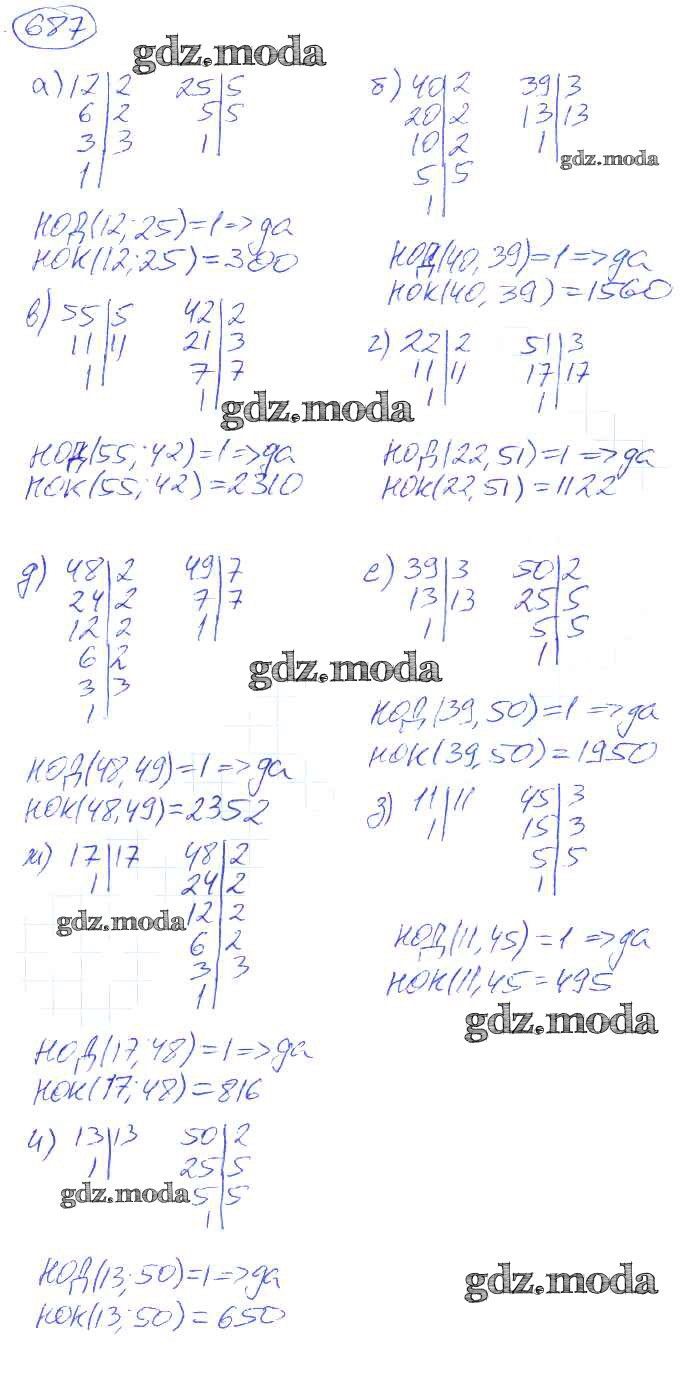 687
gdz.moda
а) 12 | 2 25 | 5
6 | 2 5 | 5
3 | 3 1 |
1 |
НОД(12; 25) = 1 => да
НОК(12; 25) = 300
б) 40 | 2 39 | 3
20 | 2 13 | 13
10 | 2 1 |
5 | 5
1 |
gdz.moda
НОД(40, 39) = 1 => да
НОК(40, 39) = 1560
в) 55 | 5 42 | 2
11 | 11 21 | 3
1 | 7 | 7
1 |
gdz.moda
НОД(55; 42) = 1 => да
НОК(55; 42) = 2310
г) 22 | 2 51 | 3
11 | 11 17 | 17
1 | 1 |
НОД(22, 51) = 1 => да
НОК(22, 51) = 1122
д) 48 | 2 49 | 7
24 | 2 7 | 7
12 | 2 1 |
6 | 2
3 | 3
1 |
gdz.moda
НОД(48, 49) = 1 => да
НОК(48, 49) = 2352
е) 39 | 3 50 | 2
13 | 13 25 | 5
1 | 5 | 5
1 |
НОД(39, 50) = 1 => да
НОК(39, 50) = 1950
ж) 17 | 17 48 | 2
1 | 24 | 2
12 | 2
6 | 2
3 | 3
1 |
gdz.moda
НОД(17; 48) = 1 => да
НОК(17; 48) = 816
з) 11 | 11 45 | 3
1 | 15 | 3
5 | 5
1 |
НОД(11, 45) = 1 => да
НОК(11, 45 = 495
gdz.moda
и) 13 | 13 50 | 2
1 | 25 | 5
5 | 5
1 |
gdz.moda
НОД(13; 50) = 1 => да
НОК(13; 50) = 650
gdz.moda